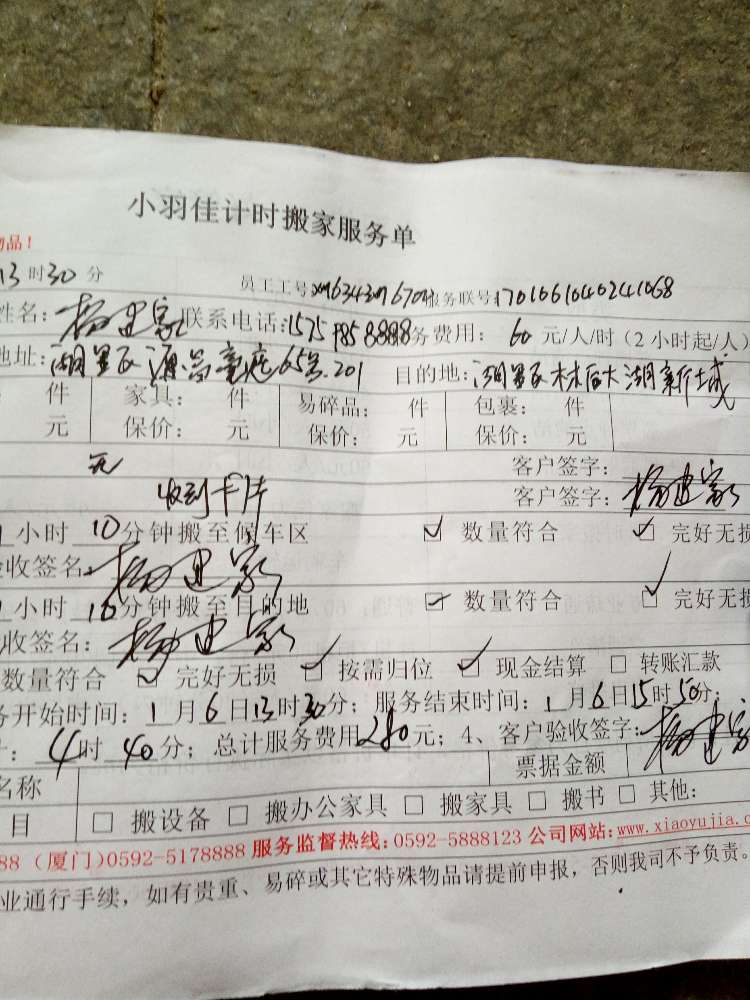 小羽佳计时搬家服务单
物品！
13时30分 员工工号 服务联号
姓名：杨建家 联系电话： 务费用：60元/人/时（2小时起/人）
地址：湖里区 65号.201 目的地：湖里区林后大湖新城
件 家具： 件 易碎品： 件 包裹： 件
元 保价： 元 保价： 元 保价： 元
元 客户签字：
收到卡片 客户签字：杨建家
小时10分钟搬至候车区 ☑ 数量符合 ☑ 完好无损
验收签名：杨建家
小时10分钟搬至目的地 ☑ 数量符合 ☑ 完好无损
收签名：杨建家
数量符合 ☑ 完好无损 ☑ 按需归位 ☑ 现金结算 □ 转账汇款
务开始时间：1月6日13时30分；服务结束时间：1月6日15时50分；
：4时40分；总计服务费用280元；4、客户验收签字：杨建家
名称 票据金额
目 □ 搬设备 □ 搬办公家具 □ 搬家具 □ 搬书 □ 其他：
88（厦门）0592-5178888 服务监督热线：0592-5888123 公司网站：www.xiaoyujia.c
业通行手续，如有贵重、易碎或其它特殊物品请提前申报，否则我司不予负责。